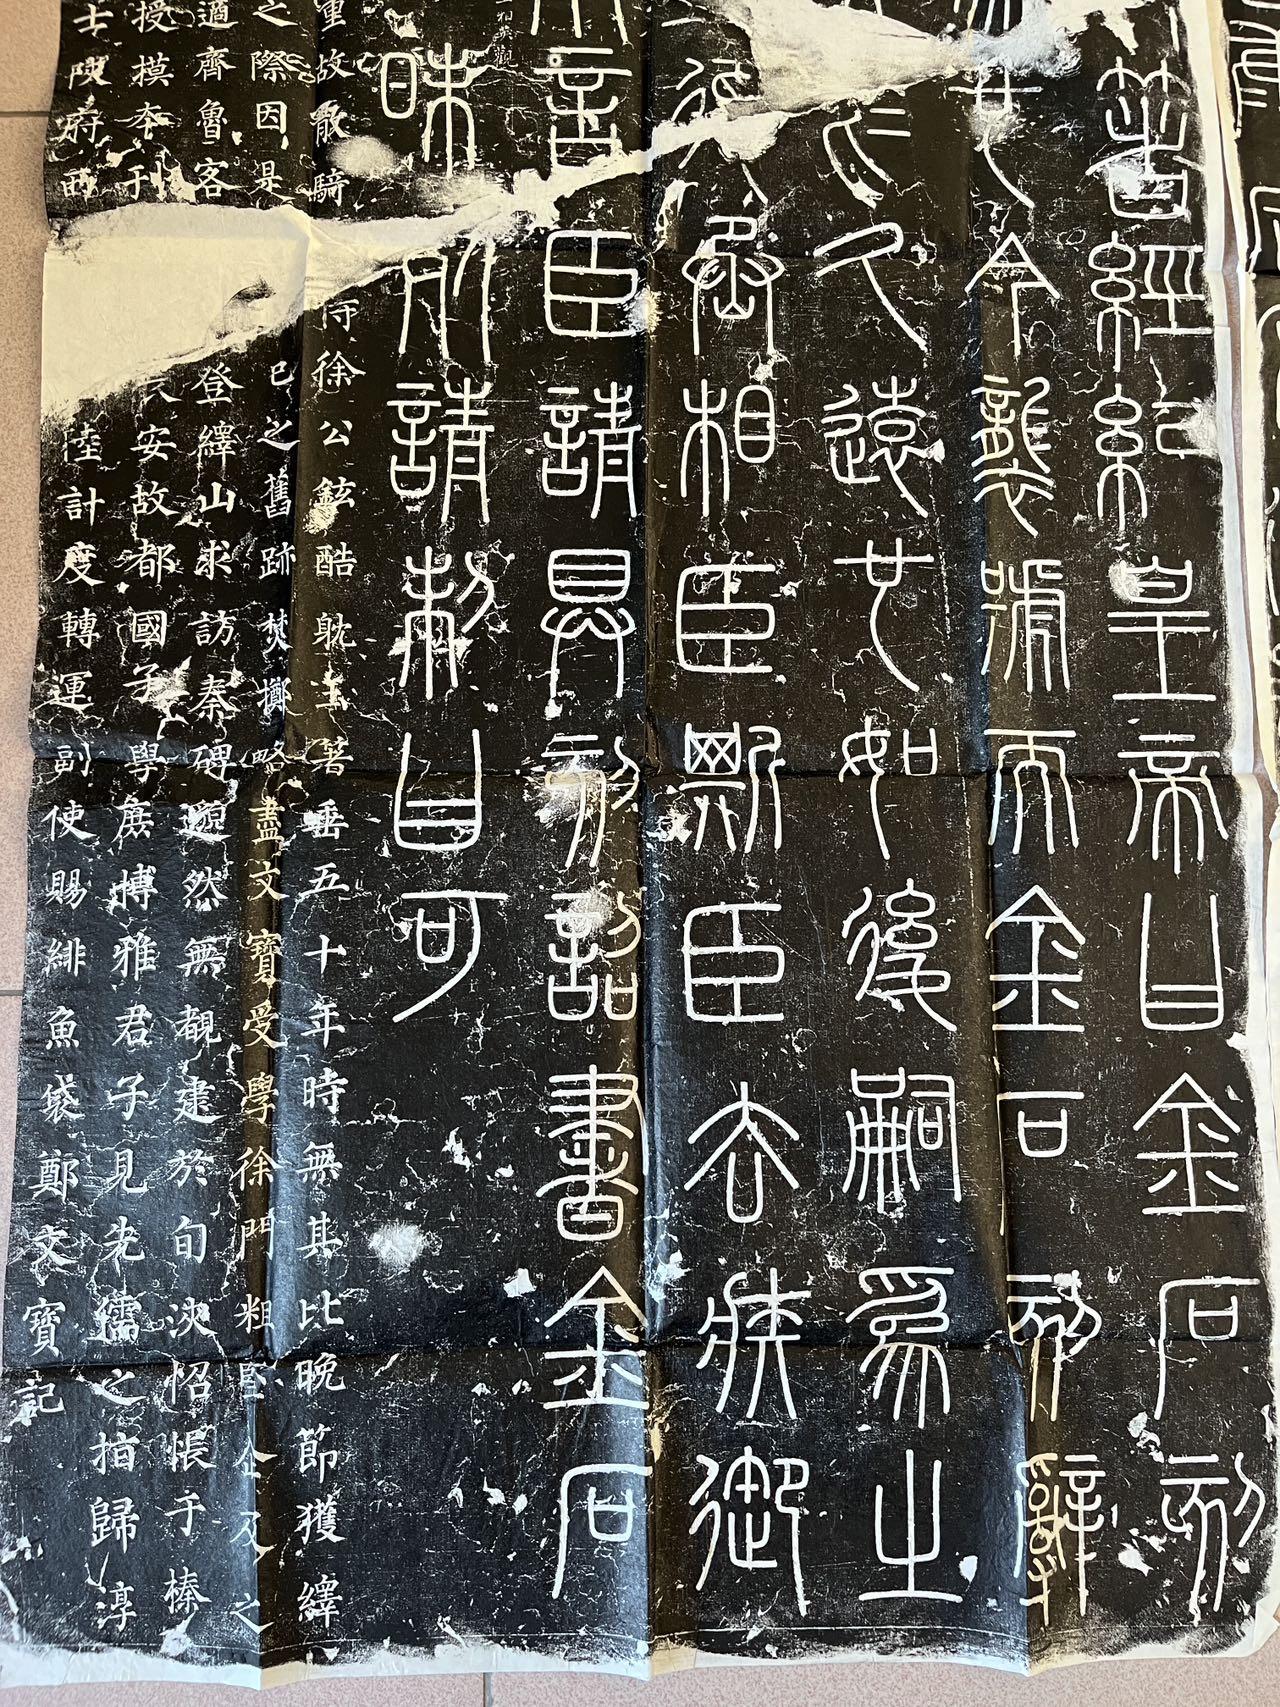 箸經紀皇帝曰金石刻
也今襲號而金石刻辭
久遠也如後嗣爲之
丞相臣斯臣去疾御
言臣請具刻詔書金石
昧死請制曰可
重故散騎侍徐公鉉酷耽玉箸垂五十年時無其比晚節獲繹
之際因是已之舊跡焚擲略盡文寶受學徐門粗堅企及之
適齊魯客登繹山求訪秦碑邈然無覩逮於旬浹怊悵于榛
授摸本刊長安故都國子學庶博雅君子見先儒之指歸淳
士陝府西陸計度轉運副使賜緋魚袋鄭文寶記